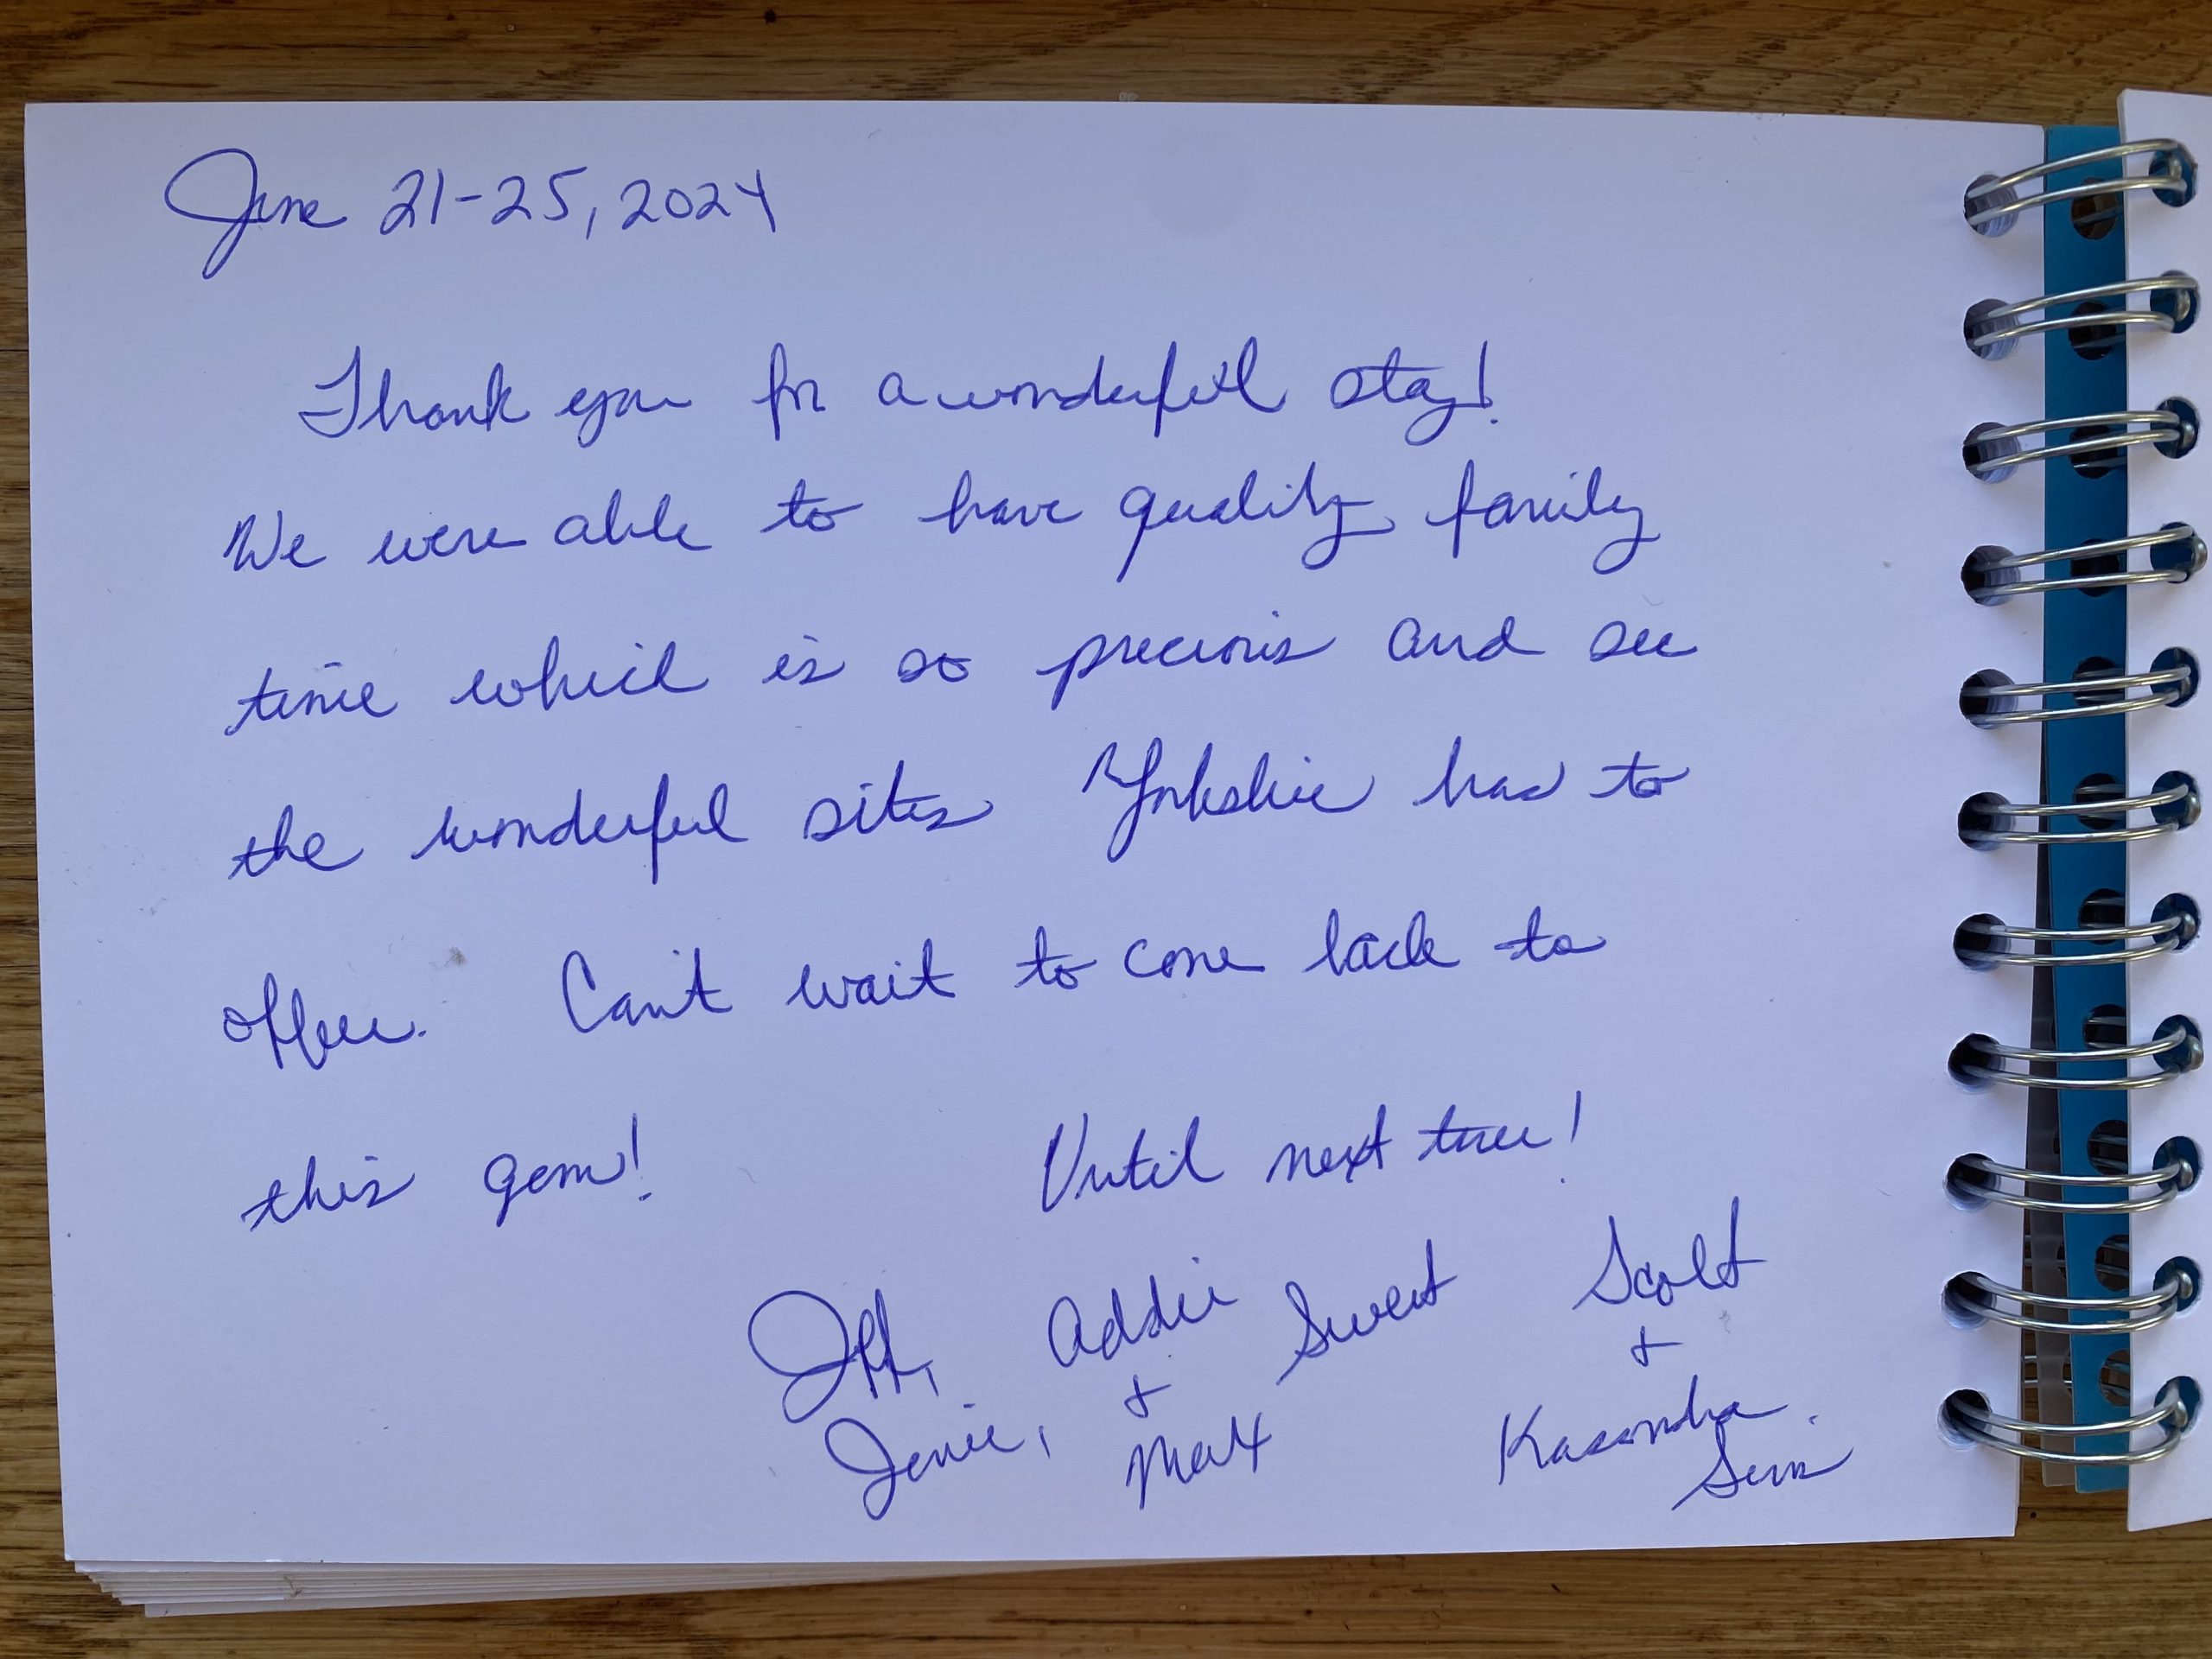 June 21-25, 2024
Thank you for a wonderful stay!
We were able to have quality family
time which is so precious and see
the wonderful sites Yorkshire has to
offer. Can't wait to come back to
this gem!
Until next time!
Jeff, Addie Sweet Scott
& &
Jenie, Max Kasondra